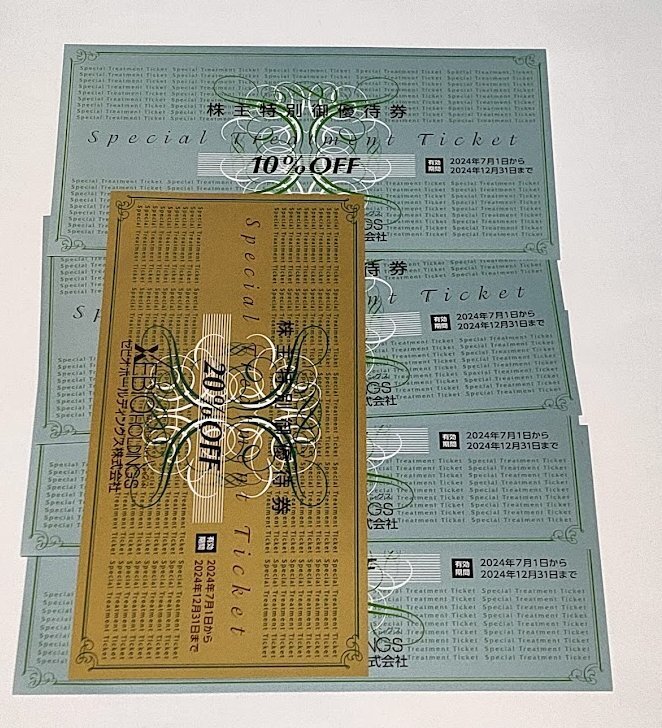 株主特別御優待券
Special Treatment Ticket
10%OFF
有効期間 2024年7月1日から
2024年12月31日まで
GS
会社
待券
nt Ticket
有効期間 2024年7月1日から
2024年12月31日まで
GS
式会社
有効期間 2024年7月1日から
2024年12月31日まで
GS
式会社
有効期間 2024年7月1日から
2024年12月31日まで
NGS
式会社
株主特別御優待券
Special Treatment Ticket
20%OFF
有効期間 2024年7月1日から
2024年12月31日まで
XEBIOHOLDINGS
ゼビオホールディングス株式会社